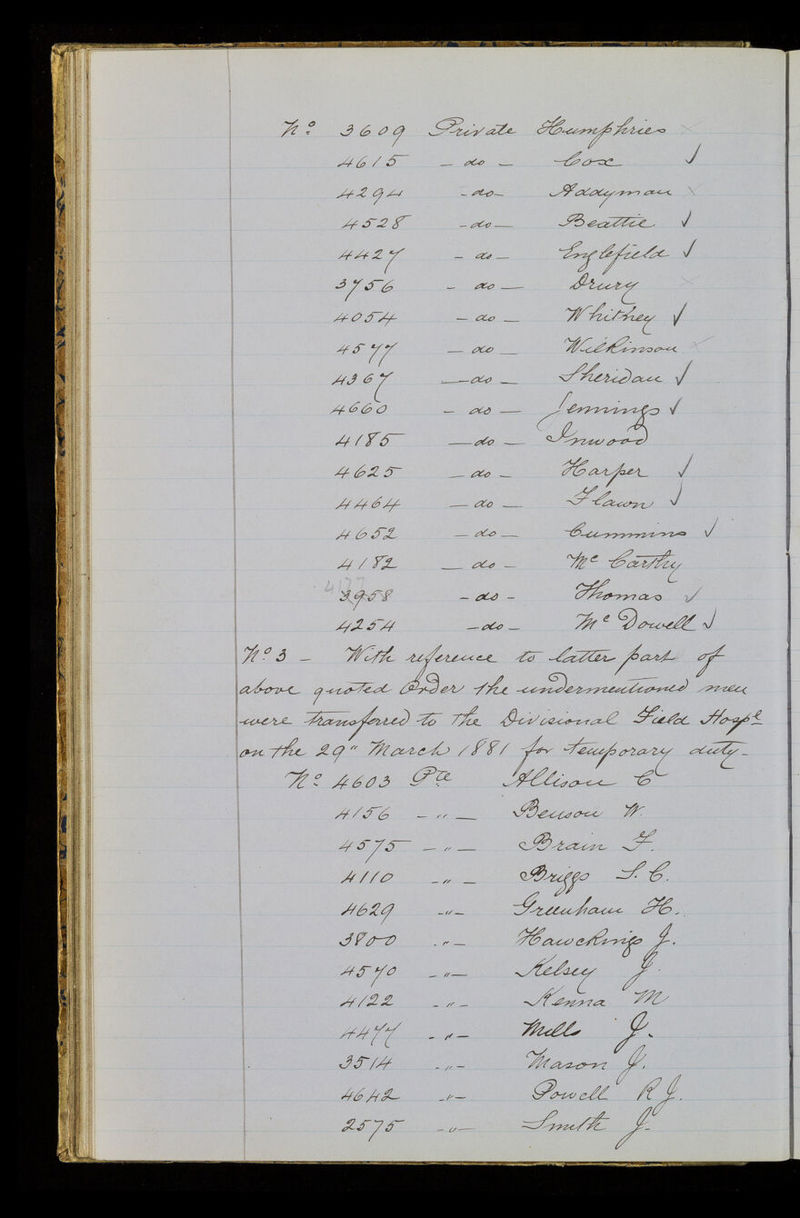 No 3609 Private Humphries ×
4615 - do - Cox ✓
4294 - do - Addyman ×
4528 - do - Beattie ✓
4427 - do - Englefield ✓
3756 - do - Drury ×
4054 - do - Whitney ✓
4577 - do - Wilkinson ×
4367 - do - Sheridan ✓
4660 - do - Jennings ✓
4185 - do - Inwood
4625 - do - Harper ✓
4464 - do - Flawn ✓
4652 - do - Cummins ✓
4182 - do - Mc Carthy
4177
3958 - do - Thomas ✓
4254 - do - Mc Dowell ✓
No 3 - With reference to latter part of
above quoted Order the undermentioned men
were transferred to the Divisional Field Hospl
on the 29" March 1881 for temporary duty -
No 4603 Pte Allison C
4156 - " - Benson W.
4575 - " - Brain F.
4110 - " - Briggs S. C.
4629 - " - Greenham H.
3800 - " - Hawckings J.
4570 - " - Kelsey J.
4122 - " - Kenna M
4477 - " - Mills J.
3514 - " - Mason J.
4642 - " - Powell R J.
2575 - " - Smith J.